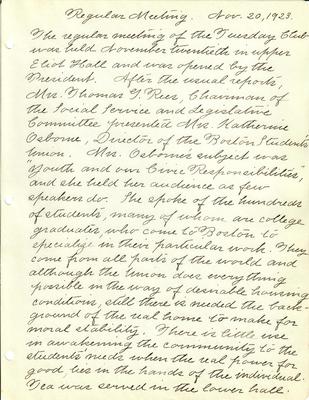 Regular Meeting. Nov. 20, 1923.
The regular meeting of the Tuesday Club
was held November twentieth in upper
Eliot Hall and was opened by the
President. After the usual reports,
Mrs. Thomas G. Rees, Chairman of
the Social Service and Legislative
Committee presented Mrs. Katherine
Osborne, Director of the Boston Students'
Union. Mrs. Osborne's subject was
"Youth and our Civic Responsibilities",
and she held her audience as few
speakers do. She spoke of the hundreds
of students, many of whom are college
graduates, who come to Boston to
specialize in their particular work. They
come from all parts of the world and
although the Union does everything
possible in the way of desirable housing
conditions, still there is needed the back-
ground of the real home to make for
moral stability. There is little use
in awakening the community to the
students needs when the real power for
good, lies in the hands of the individual.
Tea was served in the lower hall.